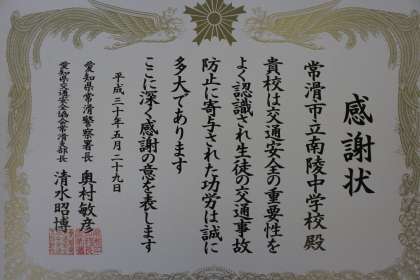 感謝状
常滑市立南陵中学校 殿
貴校は交通安全の重要性を
よく認識され生徒の交通事故
防止に寄与された功労は誠に
多大であります
ここに深く感謝の意を表します
平成三十年五月二十九日
愛知県常滑警察署長 奥村敏彦
愛知県交通安全協会常滑支部長 清水昭博